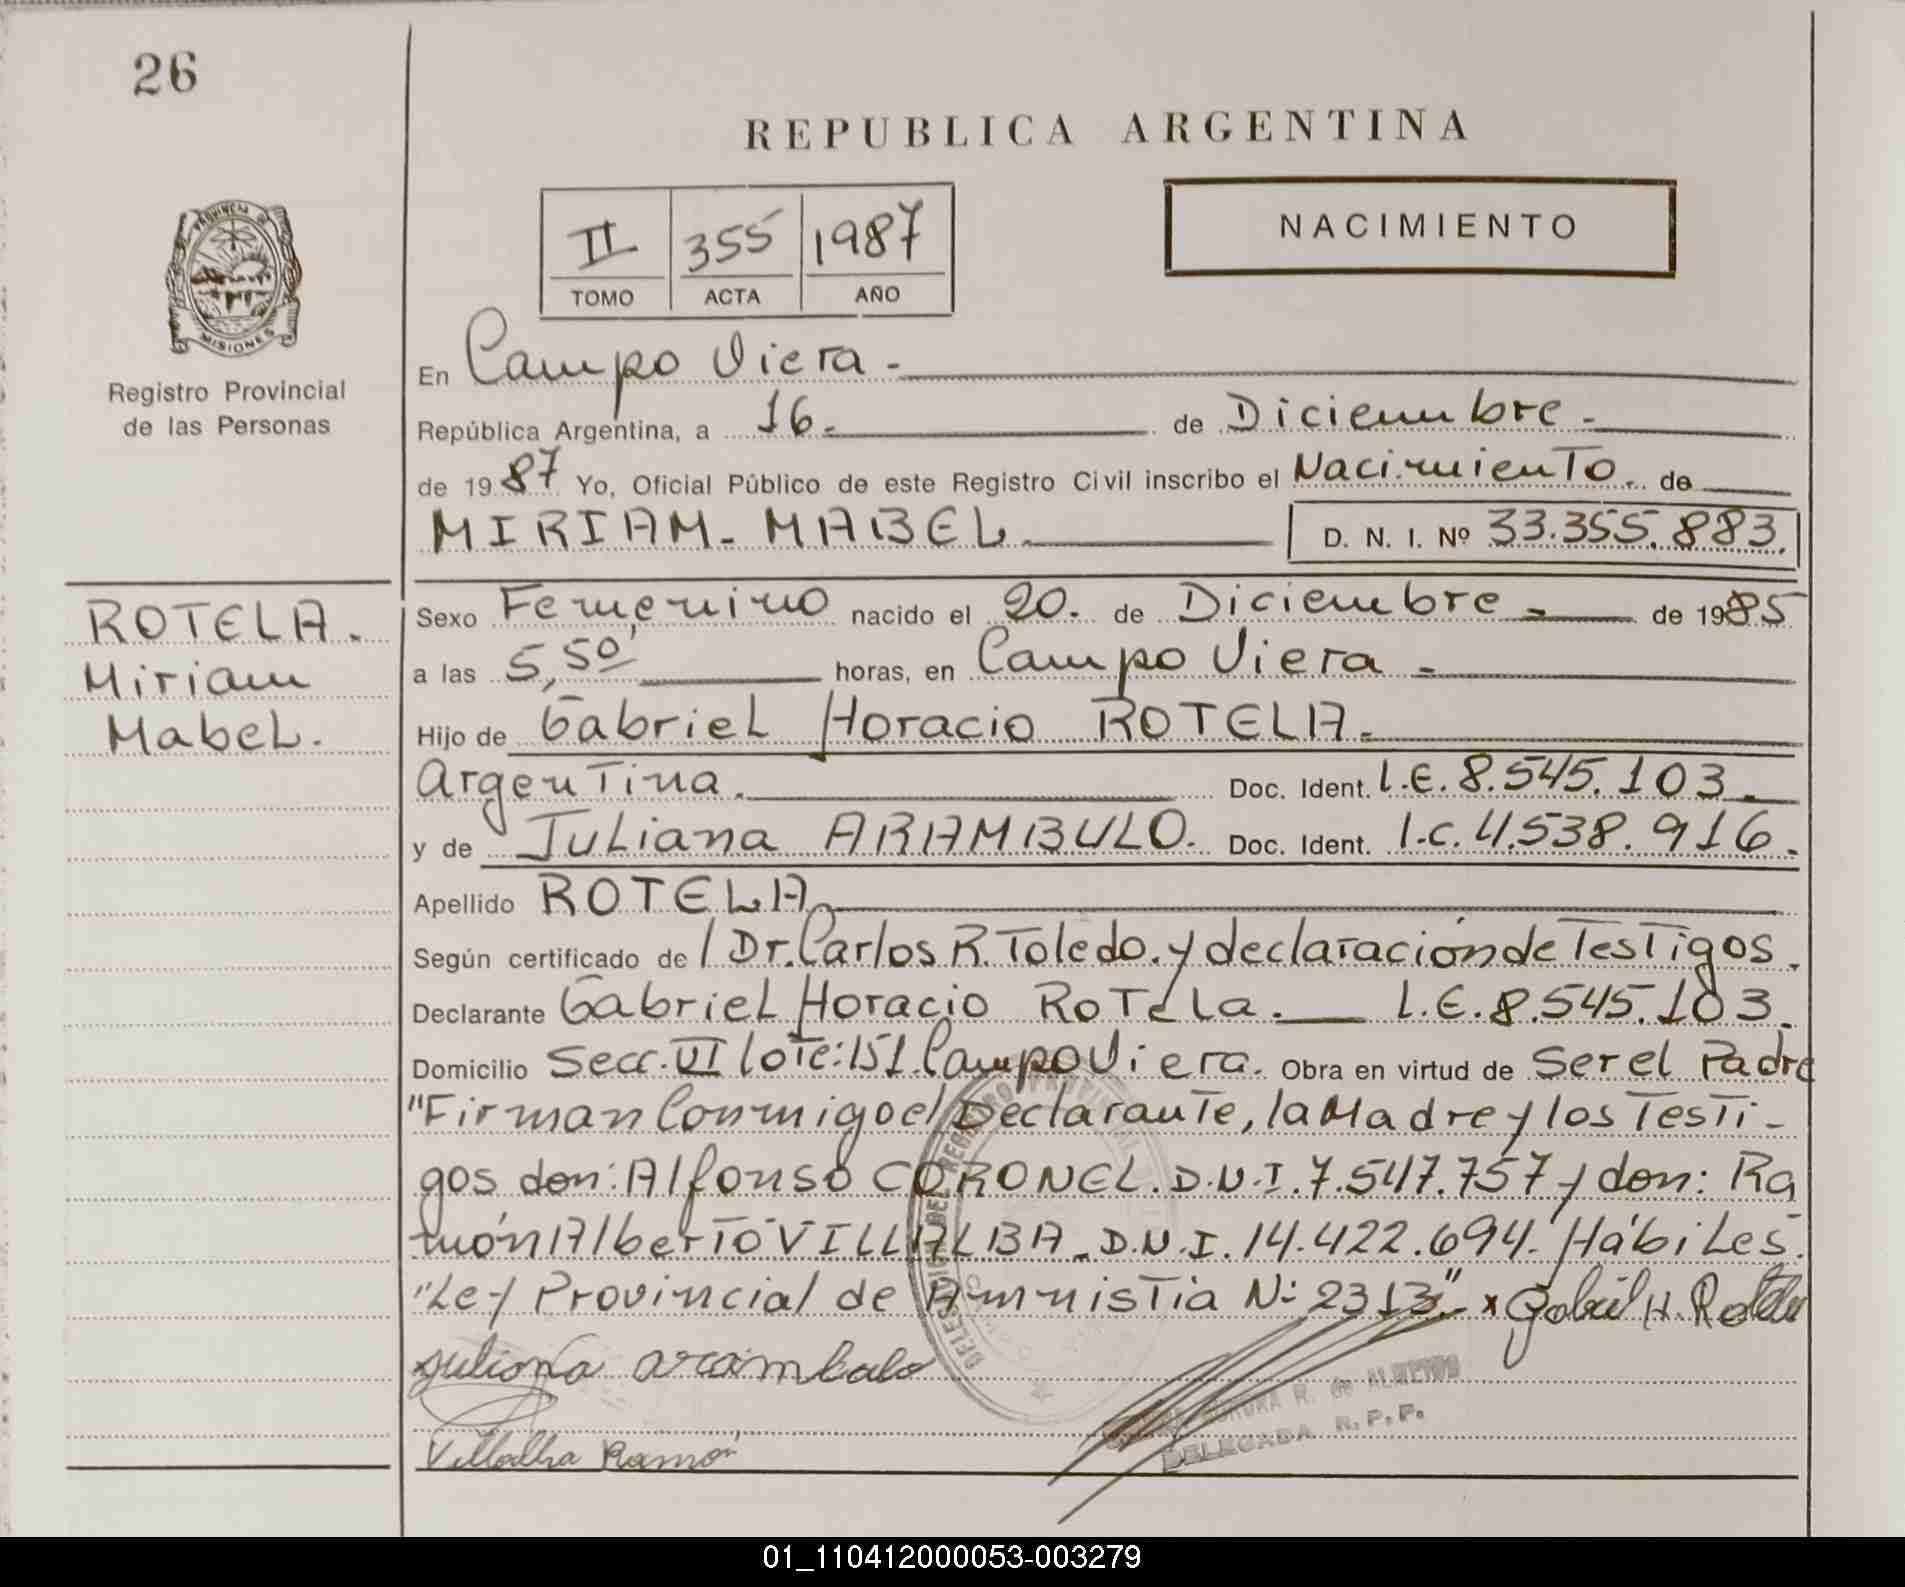 26
REPUBLICA ARGENTINA
PROVINCIA DE
MISIONES
Registro Provincial
de las Personas
II 355 1987
TOMO ACTA AÑO
NACIMIENTO
En Campo Viera.-
República Argentina, a 16.- de Diciembre.-
de 1987 Yo, Oficial Público de este Registro Civil inscribo el Nacimiento. de
MIRIAM-MABEL. D. N. I. Nº 33.355.883.
ROTELA.
Miriam
Mabel.
Sexo Femenino nacido el 20. de Diciembre - de 1985
a las 5,50' horas, en Campo Viera -
Hijo de Gabriel Horacio ROTELA.
Argentina. Doc. Ident. L.E. 8.545.103.
y de Juliana ARAMBULO. Doc. Ident. I.C. 4.538.916.
Apellido ROTELA
Según certificado de / Dr. Carlos R. Toledo. y declaración de Testigos.
Declarante Gabriel Horacio Rotela. L.E. 8.545.103.
Domicilio Secc. VI lote: 151. Campo Viera. Obra en virtud de Ser el Padre
"Firman Conmigo el Declarante, la Madre y los Testi-
gos don: Alfonso CORONEL. D.N.I. 7.547.757 y don: Ra
món Alberto VILLALBA. D.N.I. 14.422.694. Hábiles.
"Ley Provincial de Amnistia Nº 2313".- x Gabriel H. Rotela
Juliana arambulo
Villalba Ramón
DELEGADA R.P.P.
01_110412000053-003279